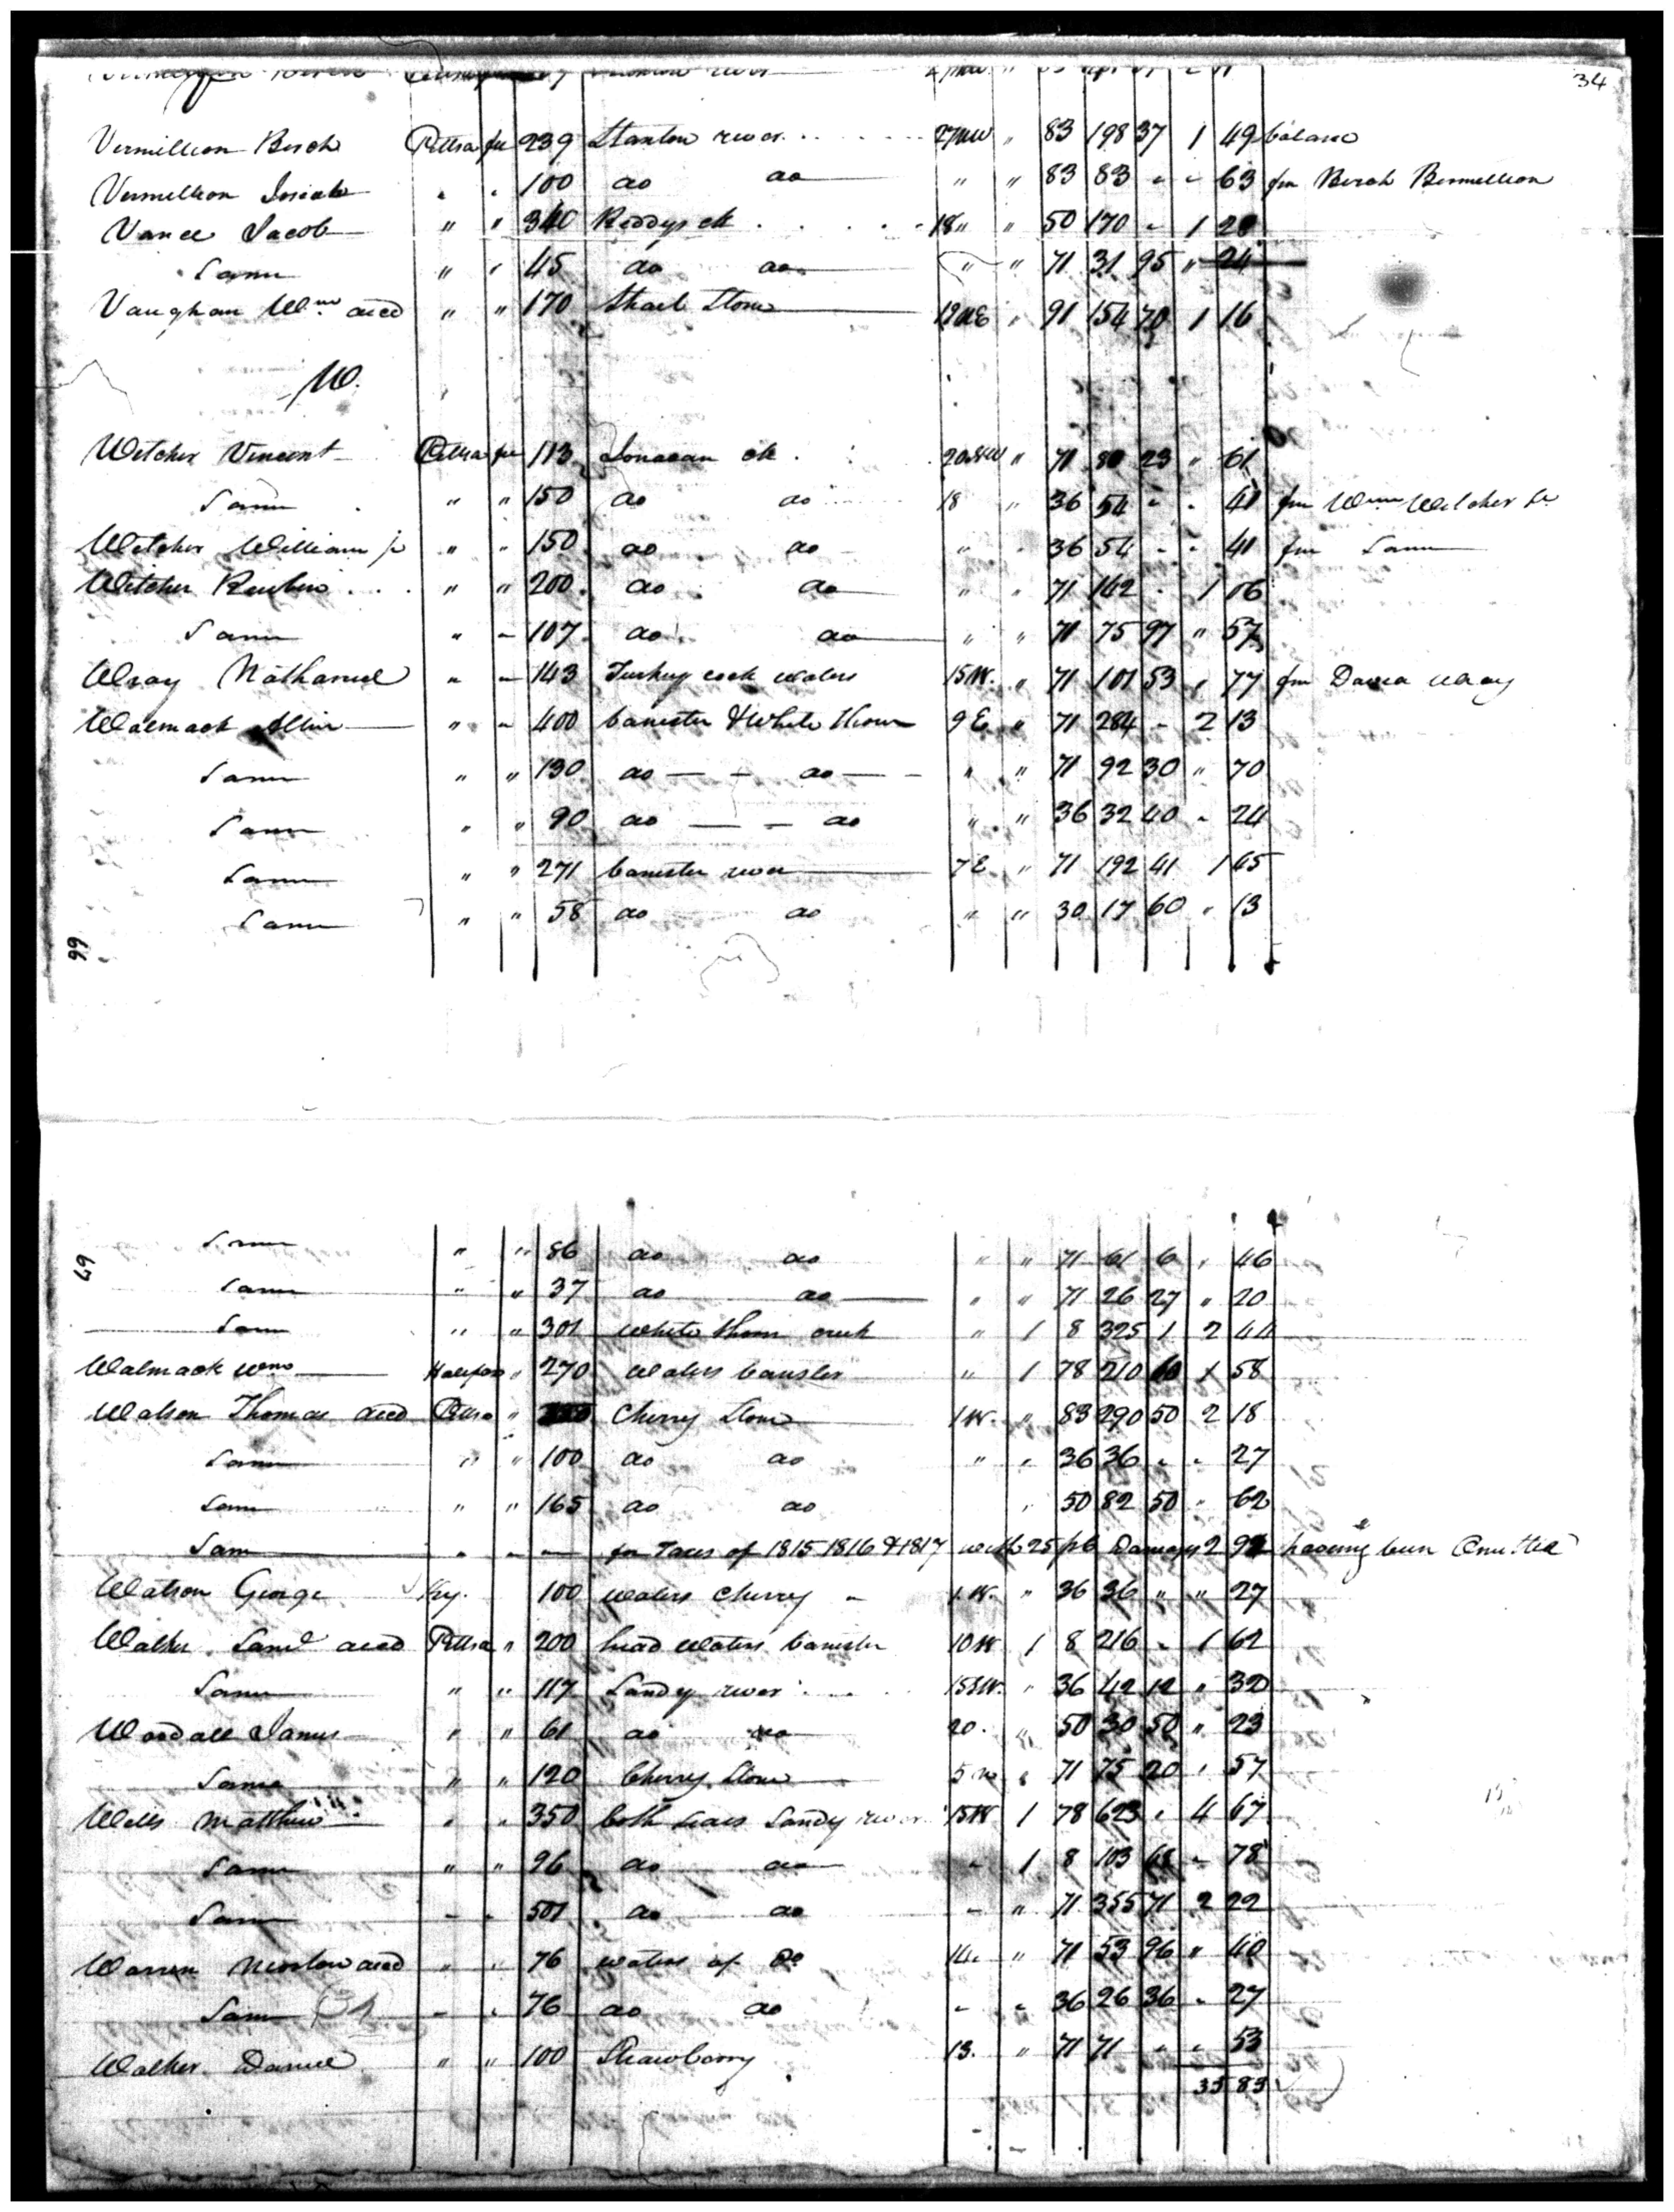 34
Vermillion Berch Pittsa fee 239 Stanton river 27 NW " 83 198 37 1 49 balance
Vermillion Josiah " " 100 do do " " 83 83 - - 63 fm Berch Bermillion
Vance Jacob " " 340 Reddys ck 18 " " 50 170 - 1 28
Same " " 45 do do " " 71 31 95 " 24
Vaughan Wm decd " " 170 Shael Stone 19 NE " 91 154 70 1 16
W.
Witcher Vincent Pittsa fee 113 ck 20 SW " 71 80 23 " 61
Same " " 150 do do 18 " 36 54 - - 41 fm Wm Witcher Sr
Witcher William jr " " 150 do do " " 36 54 - - 41 fm Same
Witcher Reubin " " 200 do do " " 71 142 - 1 06
Same " - 107 do do " " 71 75 97 " 57
Wray Nathaniel " - 143 Turkey cock waters 15 W. " 71 101 53 " 77 fm Wray
Walmack Allin " - 400 banister & White thorn 9 E " 71 284 - 2 13
Same " " 130 do do " " 71 92 30 " 70
Same " " 90 do do " " 36 32 40 - 24
Same " " 271 banister river 7 E " 71 192 41 1 45
Same " " 58 do do " " 30 17 60 " 13
66
67
Same " " 86 do do " " 71 61 6 " 46
Same " " 37 do do " " 71 26 27 " 20
Same " " 301 white thorn creek " 1 8 325 1 2 44
Walmack Wm Halifax " 270 waters banister " 1 78 210 60 1 58
Watson Thomas decd Pittsa " Cherry Stone 1 W. " 83 290 50 2 18
Same " " 100 do do " " 36 36 - - 27
Same " " 165 do do " 50 82 50 " 62
Same - - - for Taxes of 1815 1816 & 1817 with 25 pc Damages 2 92 haveing been Omitted
Watson George Ky. 100 waters Cherry " 1 W. " 36 36 " " 27
Walker Saml decd Pittsa " 200 head waters banister 10 W 1 8 216 - 1 62
Same " " 117 Sandy river 15 SW. " 36 42 12 " 32
Woodall James " " 61 do do 20. " 50 30 50 " 23
Same " " 120 Cherry Stone 5 W " 71 75 20 " 57
Wells Matthew " " 350 both sides Sandy river 15 W 1 78 623 - 4 67
Same " " 96 do do - 1 8 103 68 - 78
Same - - 501 do do - " 71 355 71 2 22
Warren decd " " 76 waters of Do 14. " 71 53 96 " 40
Same - " 76 do do - - 36 26 36 - 27
Walker Daniel " " 100 Strawberry 13. " 71 71 - - 53
33 83